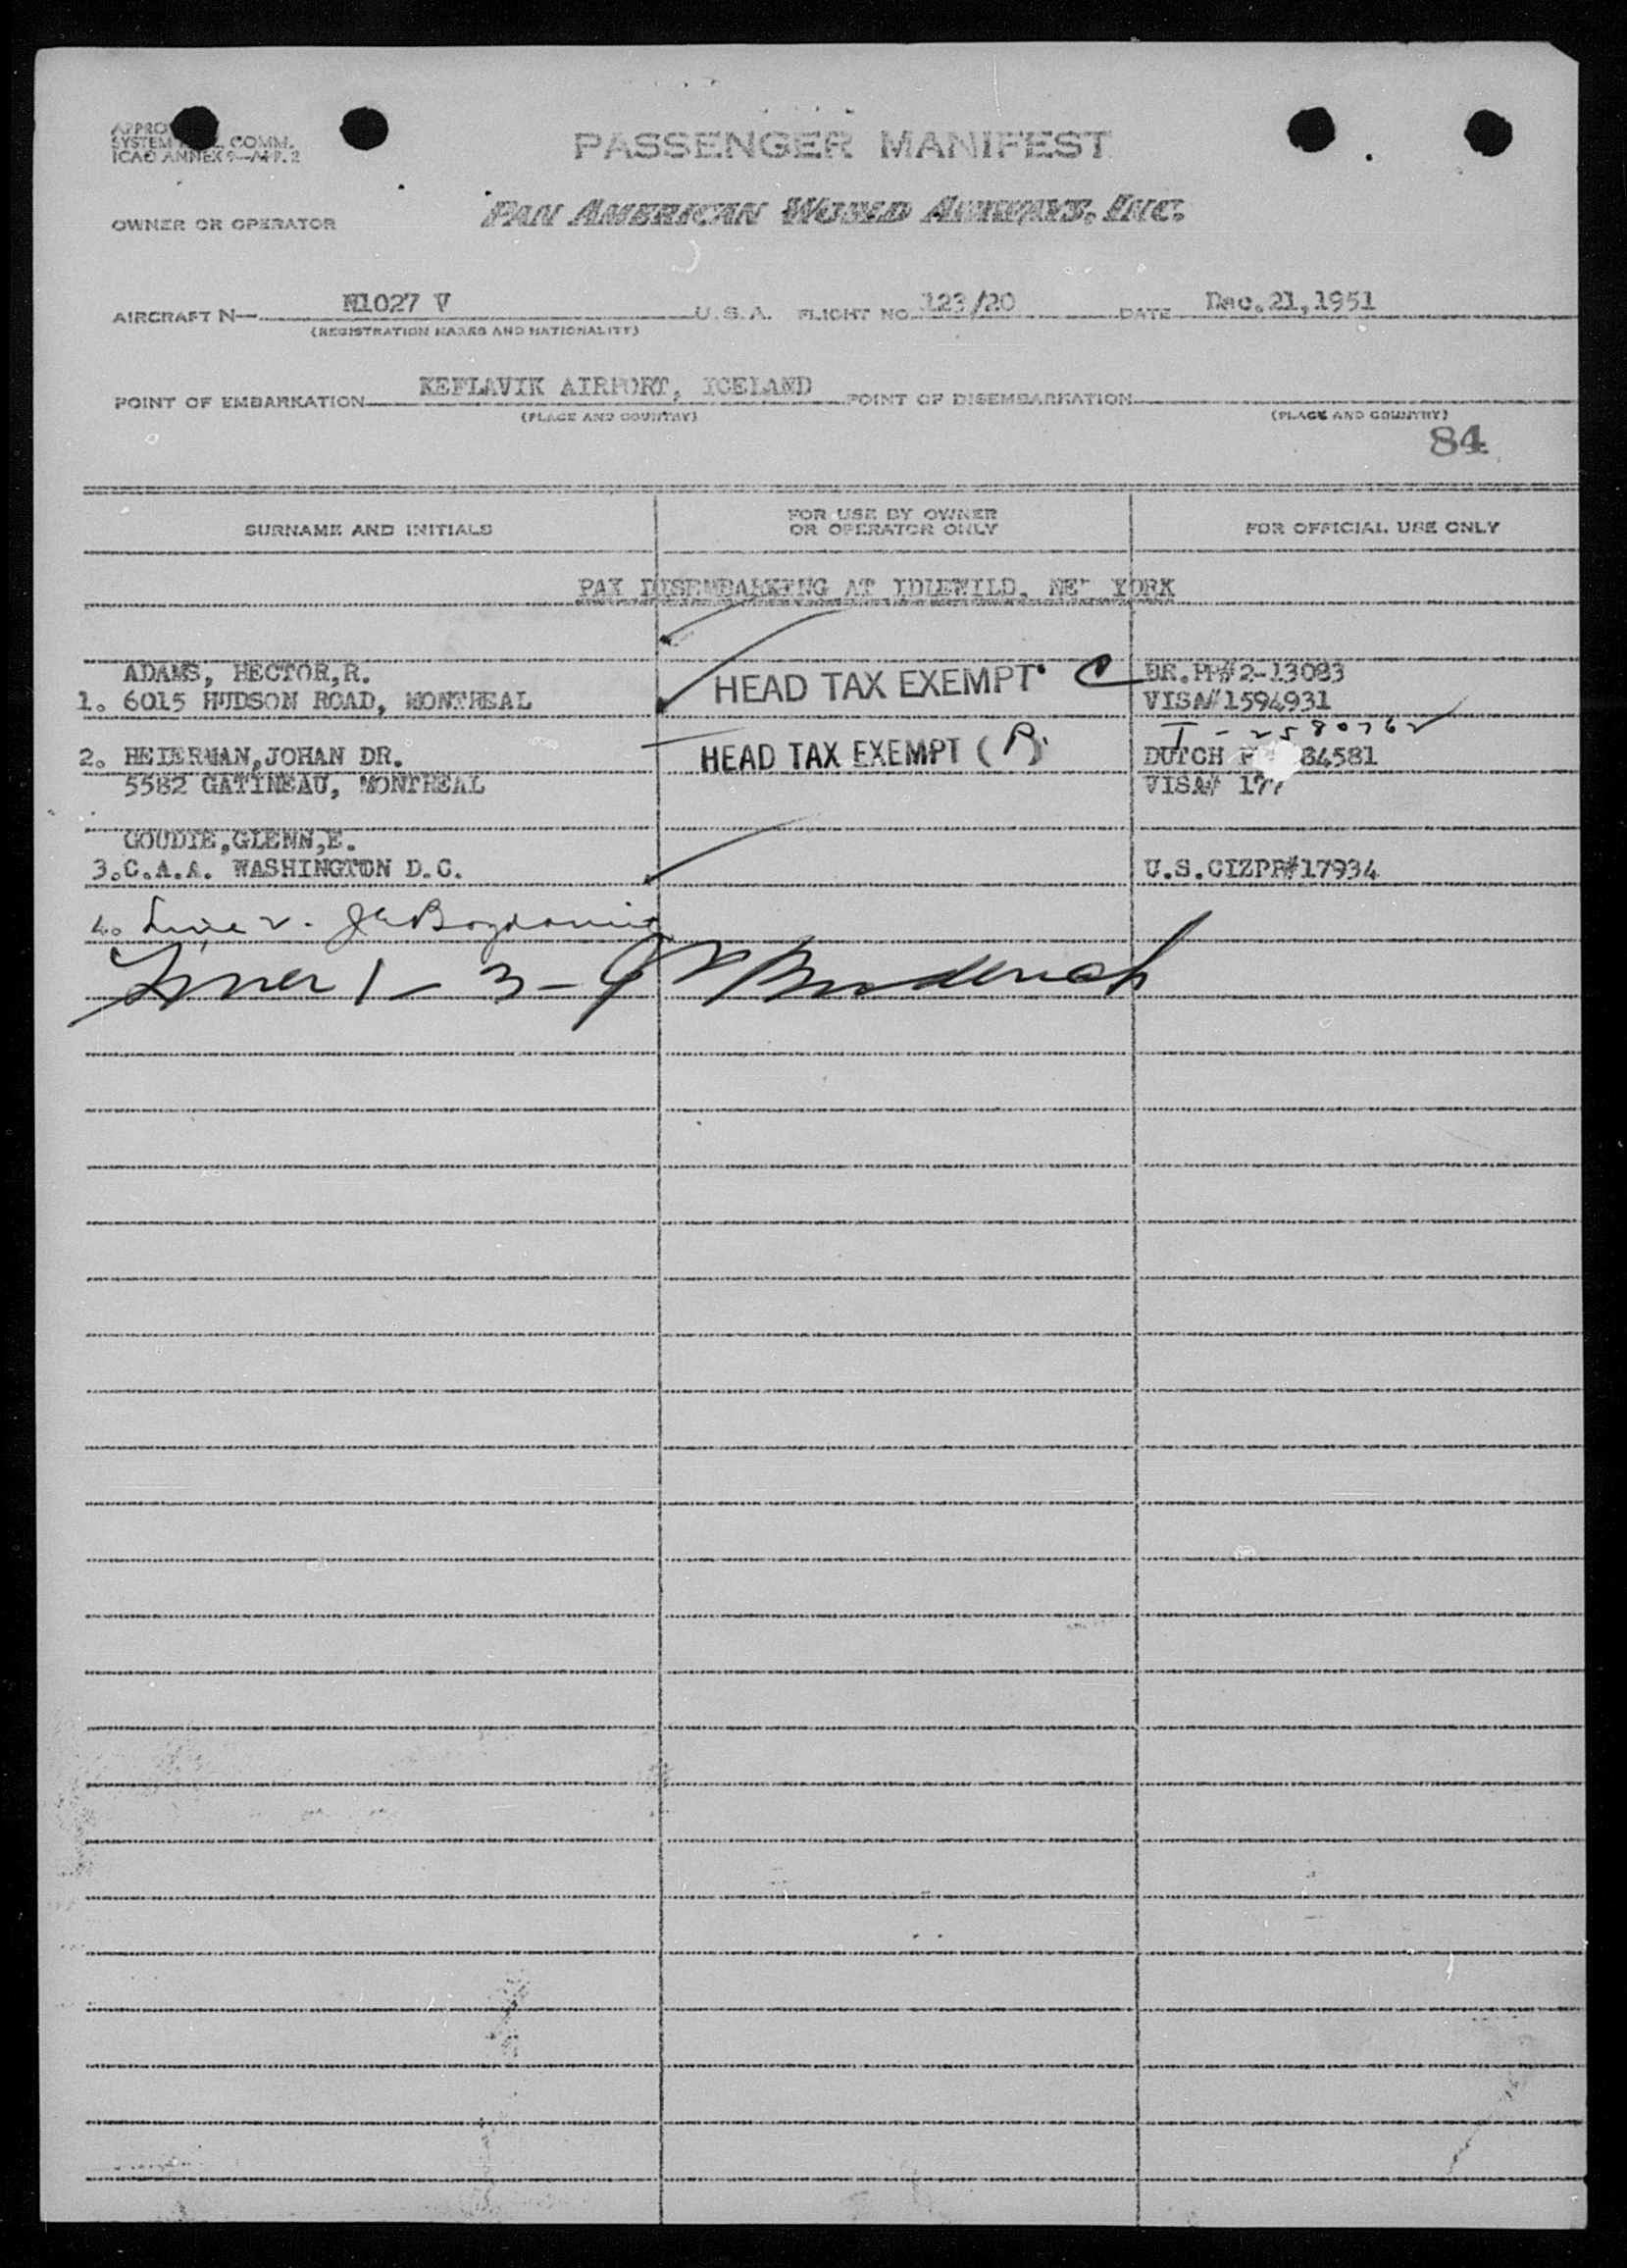 SYSTEM COMM.
ICAO ANNEX 9—APP. 2
PASSENGER MANIFEST
OWNER OR OPERATOR PAN AMERICAN WORLD AIRWAYS, INC.
AIRCRAFT N— N1027 V U.S.A. FLIGHT NO. 123/20 DATE Dec.21,1951
(REGISTRATION MARKS AND NATIONALITY)
POINT OF EMBARKATION KEFLAVIK AIRPORT, ICELAND POINT OF DISEMBARKATION
(PLACE AND COUNTRY) (PLACE AND COUNTRY)
84
SURNAME AND INITIALS FOR USE BY OWNER OR OPERATOR ONLY FOR OFFICIAL USE ONLY
PAX DISEMBARKING AT IDLEWILD, NEW YORK
ADAMS, HECTOR,R. BR.PP#2-13083
1. 6015 HUDSON ROAD, MONTREAL HEAD TAX EXEMPT C VISA#1594931
I-2580762
2. HEIERMAN,JOHAN DR. HEAD TAX EXEMPT (P) DUTCH 84581
5582 GATINEAU, MONTREAL VISA# 177
GOUDIE,GLENN,E.
3.C.A.A. WASHINGTON D.C. U.S.CIZPP#17934
4. Line 2.
Lines 1 - 3 -